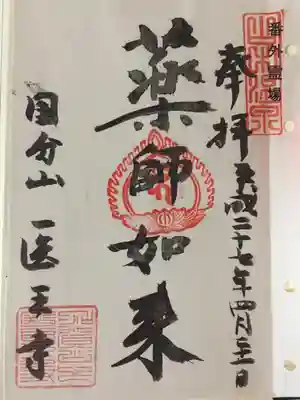 番外霊場
奉拝 平成二十七年四月十二日
薬師如来
国分山 医王寺